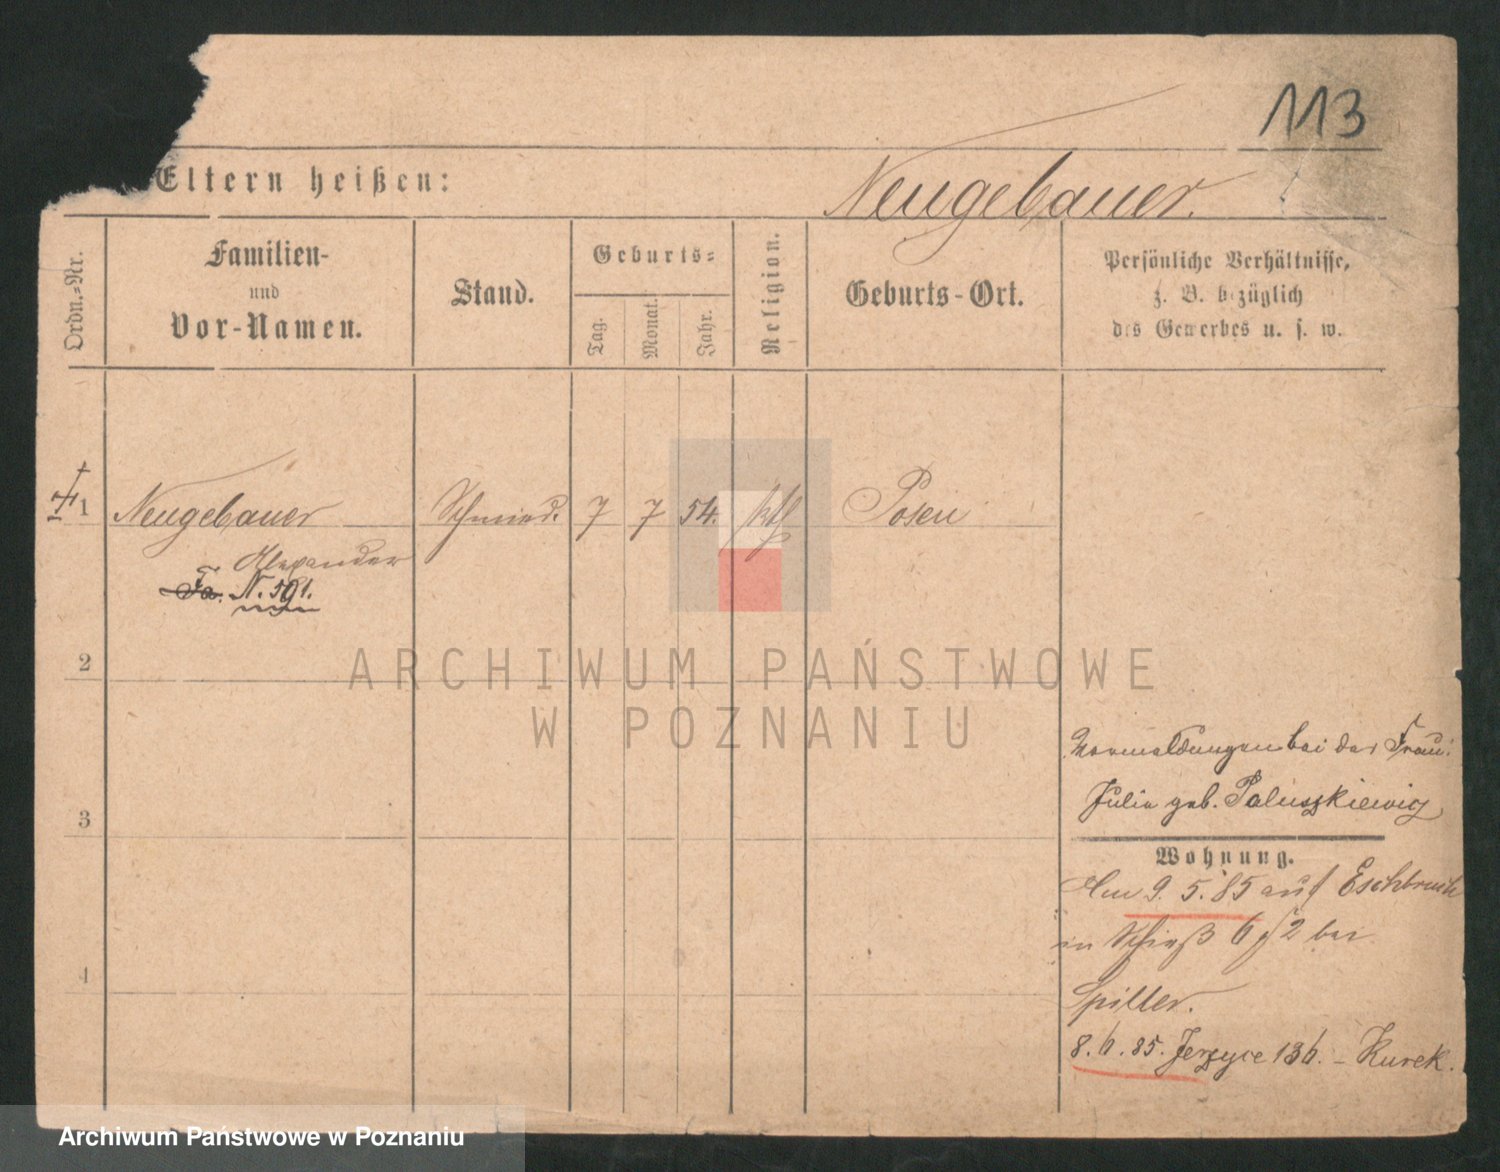 113
Eltern heißen:
Neugebauer.
Ordn.-Nr.
Familien-
und
Vor-Namen.
Stand.
Geburts-
Tag.
Monat.
Jahr.
Religion.
Geburts-Ort.
Persönliche Verhältnisse,
z. B. bezüglich
des Gewerbes u. s. w.
1 Neugebauer Schmied. 7 7 54. kth Posen
Alexander
Fa. N. 591.
2
ARCHIWUM PAŃSTWOWE
W POZNANIU
bei der Frau:
Julia geb. Paluszkiewicz
3
Wohnung.
Am 9. 5. 85 auf Eschbruch
in Schieß 6 / 2 bei
4
Spiller.
8. 6. 85. Jerzyce 136. – Kurek.
Archiwum Państwowe w Poznaniu